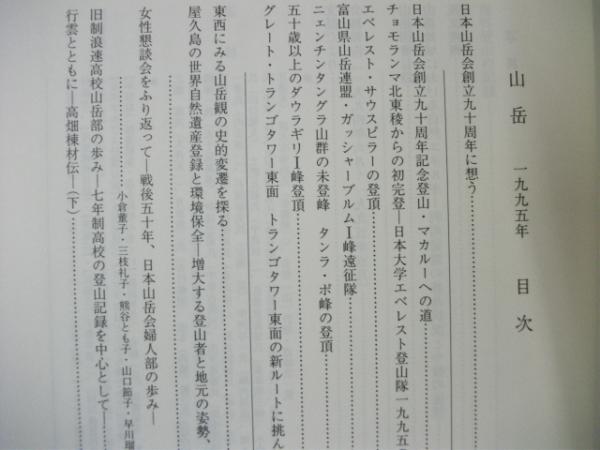 山岳 一九九五年 目次
日本山岳会創立九十周年に想う
日本山岳会創立九十周年記念登山・マカルーへの道
チョモランマ北東稜からの初完登―日本大学エベレスト登山隊一九九五
エベレスト・サウスピラーの登頂
富山県山岳連盟・ガッシャーブルムⅠ峰遠征隊
ニェンチンタングラ山群の未登峰 タンラ・ポ峰の登頂
五十歳以上のダウラギリⅠ峰登頂
グレート・トランゴタワー東面 トランゴタワー東面の新ルートに挑ん
東西にみる山岳観の史的変遷を探る
屋久島の世界自然遺産登録と環境保全―増大する登山者と地元の姿勢、
女性懇談会をふり返って―戦後五十年、日本山岳会婦人部の歩み―
小倉董子・三枝礼子・熊谷とも子・山口節子・早川瑠
旧制浪速高校山岳部の歩み―七年制高校の登山記録を中心として―
行雲とともに―高畑棟材伝―(下)